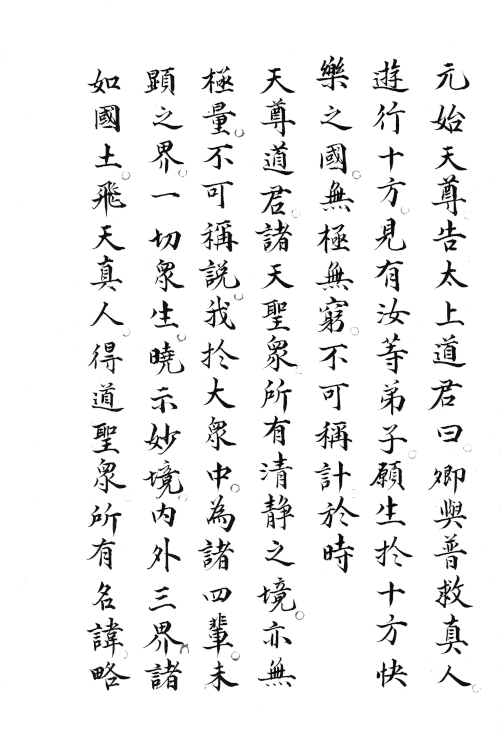 元始天尊告太上道君曰卿與普救真人。
遊行十方。見有汝等弟子。願生於十方快
樂之國。無極無窮。不可稱計於時
天尊道君。諸天聖衆。所有清静之境。亦無
極量。不可稱説。我於大衆中。為諸四輩。未
顯之界。一切衆生。曉示妙境。内外三界。諸
如國土。飛天真人。得道聖衆。所有名諱。略